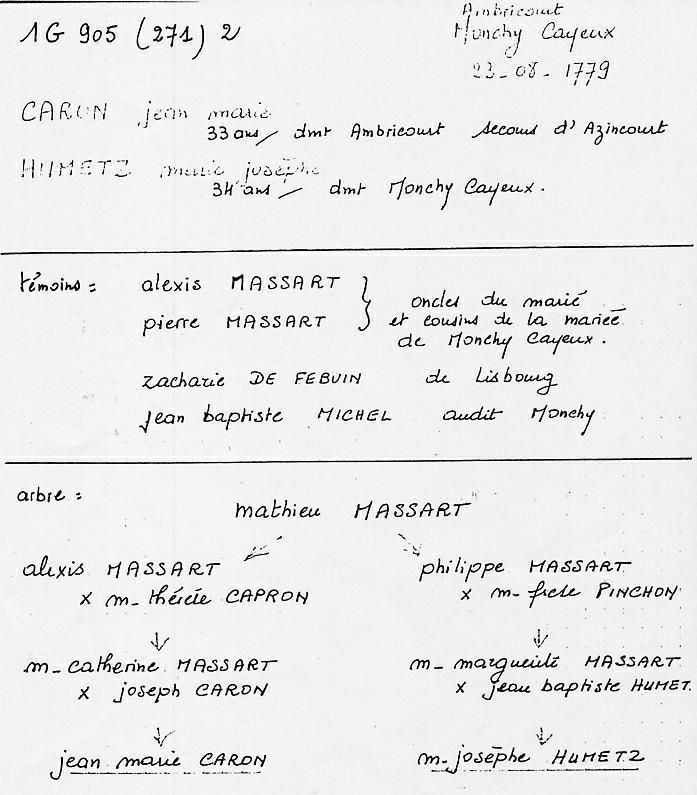 1G 905 (271) 2
Ambricourt
Monchy Cayeux
23-08-1779
CARON jean marie
33 ans / dmt Ambricourt secours d'Azincourt
HUMETZ marie josèphe
34 ans / dmt Monchy Cayeux.
témoins :
alexis MASSART
pierre MASSART
} oncles du marié
et cousins de la mariée
de Monchy Cayeux.
zacharie DE FEBUIN de Lisbourg
jean baptiste MICHEL audit Monchy
arbre :
mathieu MASSART
alexis MASSART
x m- thérèse CAPRON
↓
m- catherine MASSART
x joseph CARON
↓
jean marie CARON
philippe MASSART
x m- PINCHON
↓
m- marguerite MASSART
x jean baptiste HUMET.
↓
m- josèphe HUMETZ